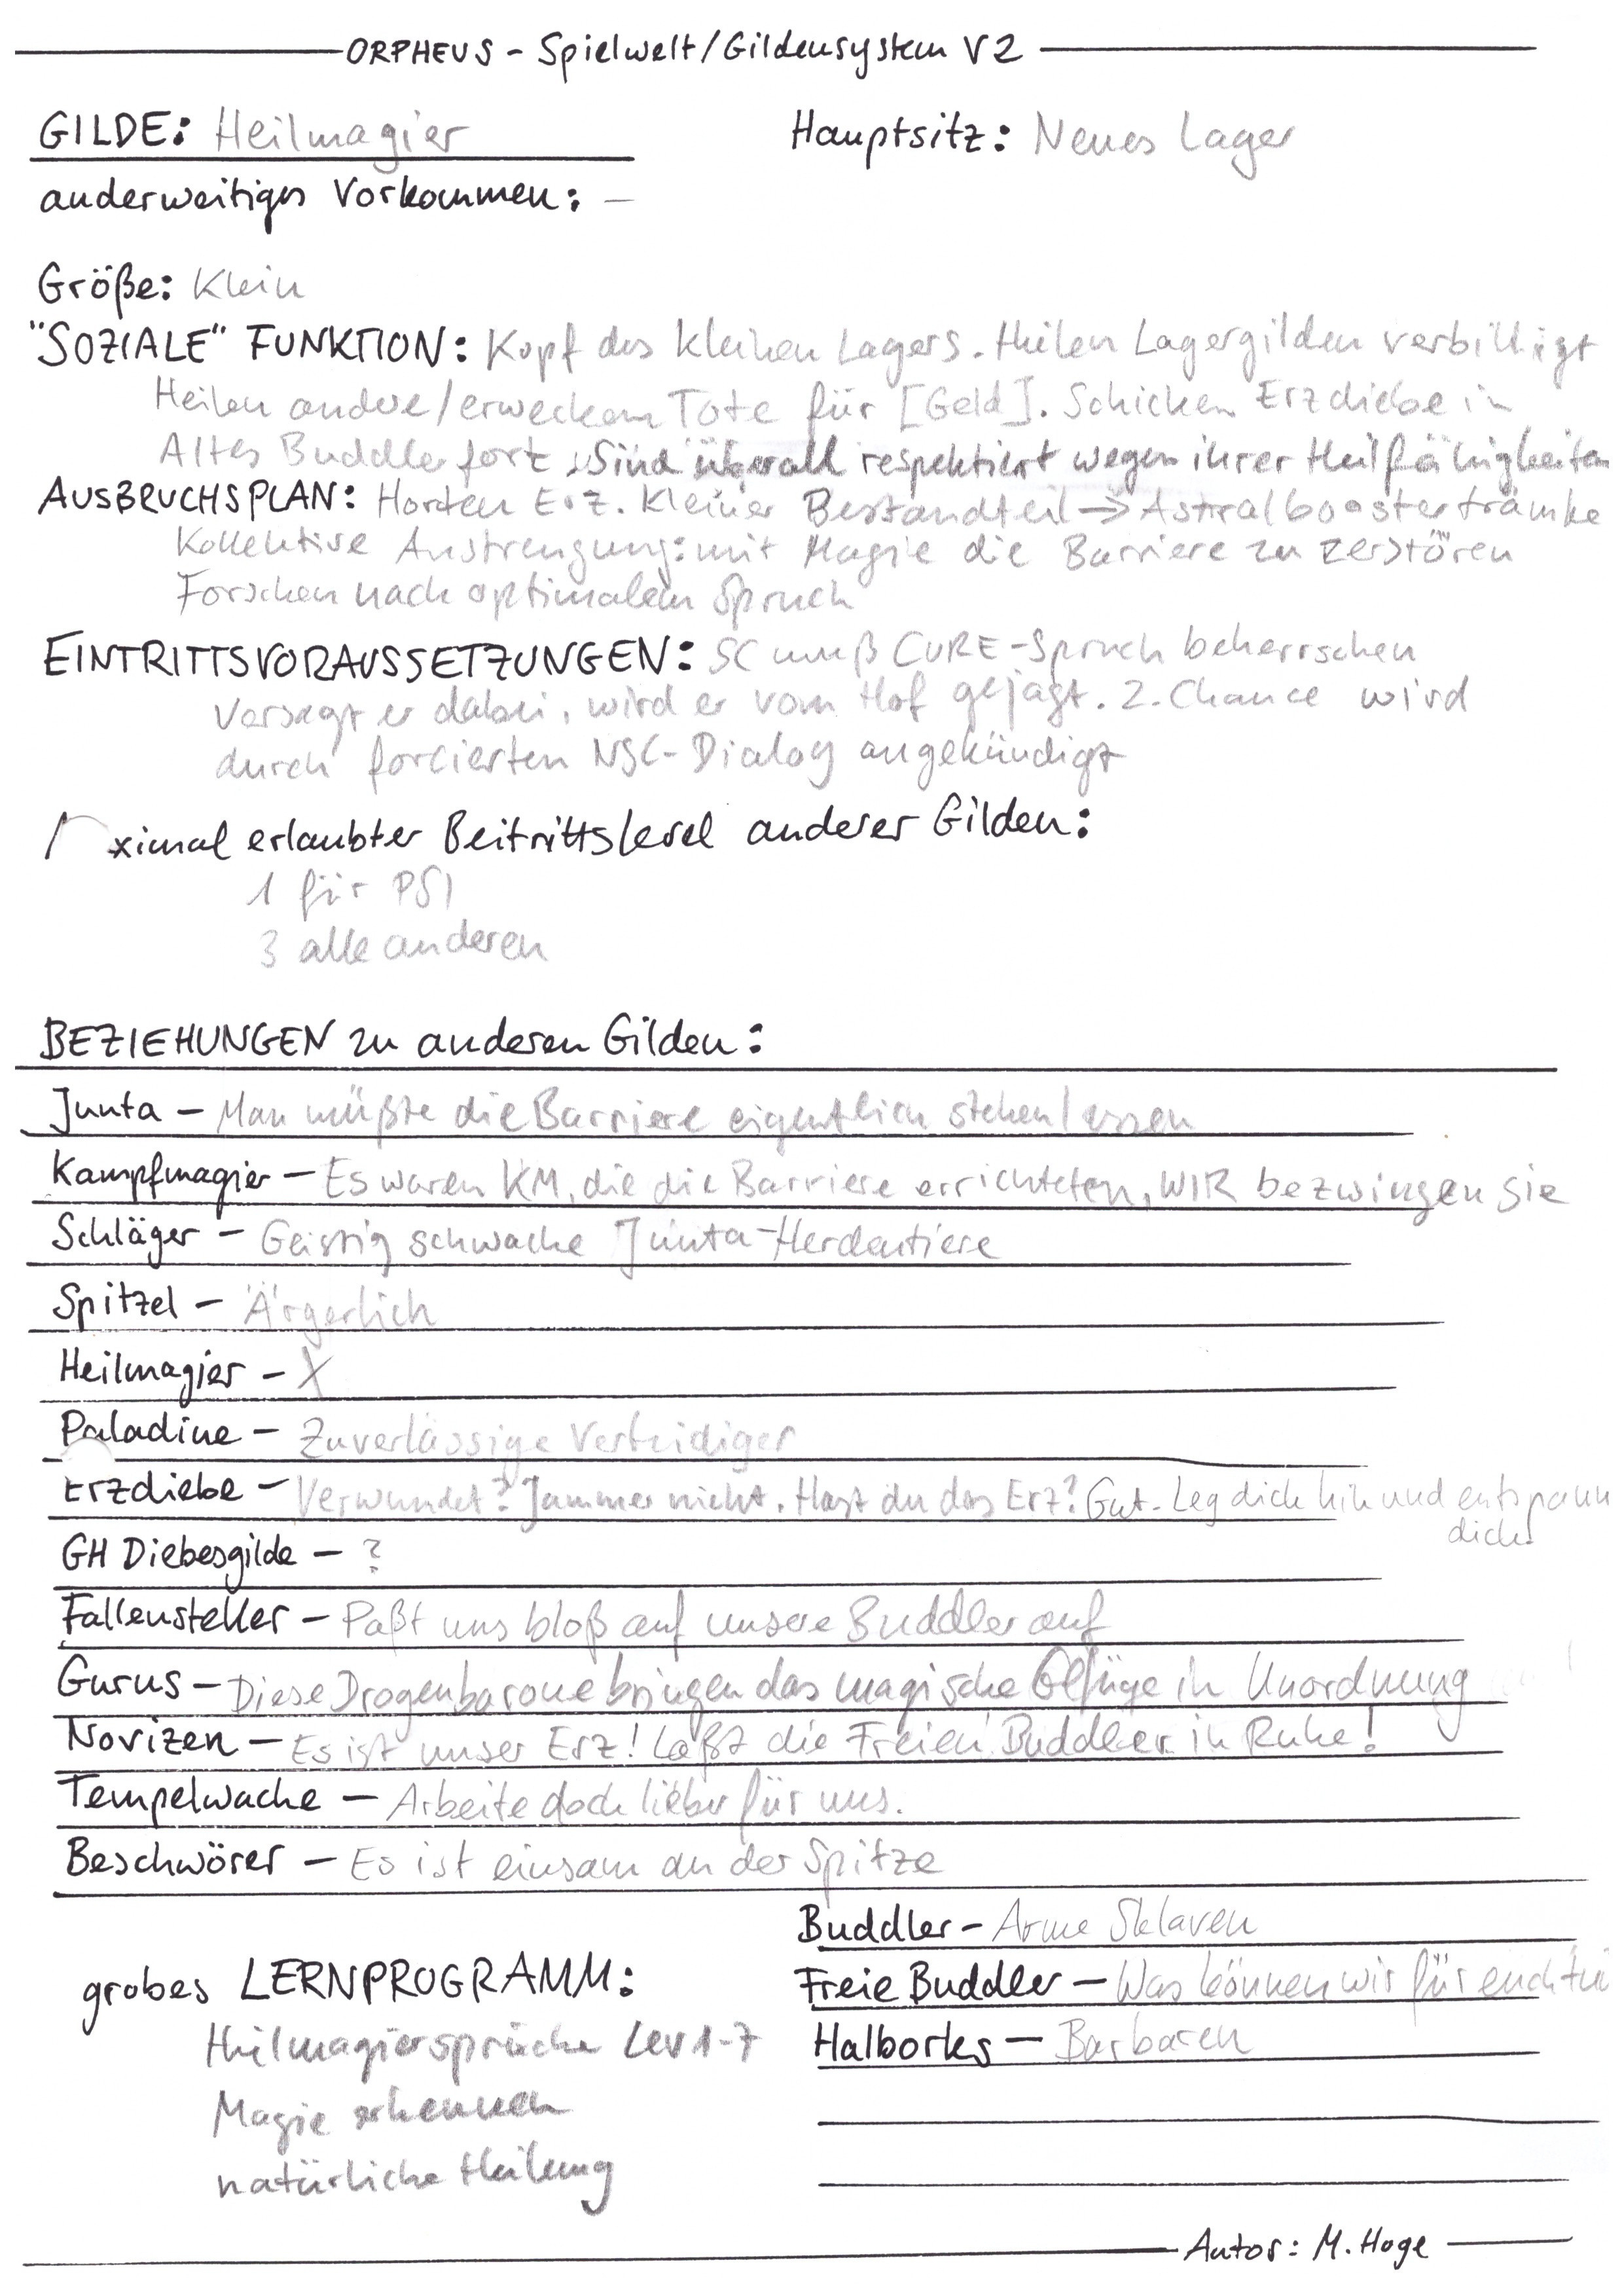 ORPHEUS - Spielwelt/Gildensystem V2
GILDE: Heilmagier
Hauptsitz: Neues Lager
anderweitiges Vorkommen: —
Größe: Klein
"SOZIALE" FUNKTION: Kopf des kleinen Lagers. Heilen Lagergilden verbilligt
Heilen andere/erwecken Tote für [Geld]. Schicken Erzdiebe in
Altes Buddlerfort. Sind überall respektiert wegen ihrer Heilfähigkeiten
AUSBRUCHSPLAN: Horten Erz. Kleiner Bestandteil → Astralboostertränke
Kollektive Anstrengung: mit Magie die Barriere zu zerstören
Forschen nach optimalem Spruch
EINTRITTSVORAUSSETZUNGEN: SC muß CURE-Spruch beherrschen
Versagt er dabei, wird er vom Hof gejagt. 2. Chance wird
durch forcierten NSC-Dialog angekündigt
ximal erlaubter Beitrittslevel anderer Gilden:
1 für PSI
3 alle anderen
BEZIEHUNGEN zu anderen Gilden:
Junta — Man müßte die Barriere eigentlich stehen lassen
Kampfmagier — Es waren KM, die die Barriere errichteten, WIR bezwingen sie
Schläger — Geistig schwache Junta-Herdentiere
Spitzel — Ärgerlich
Heilmagier — X
Paladine — Zuverlässige Verteidiger
Erzdiebe — Verwundet? Jammer nicht. Hast du das Erz? Gut. Leg dich hin und entspann
dich.
GH Diebesgilde — ?
Fallensteller — Paßt uns bloß auf unsere Buddler auf
Gurus — Diese Drogenbarone bringen das magische Gefüge in Unordnung
Novizen — Es ist unser Erz! Laßt die Freien Buddler in Ruhe!
Tempelwache — Arbeite doch lieber für uns.
Beschwörer — Es ist einsam an der Spitze
Buddler — Arme Sklaven
Freie Buddler — Was können wir für euch tu
Halborks — Barbaren
grobes LERNPROGRAMM:
Heilmagiersprüche Lev 1-7
Magie erkennen
natürliche Heilung
Autor: M. Hoge